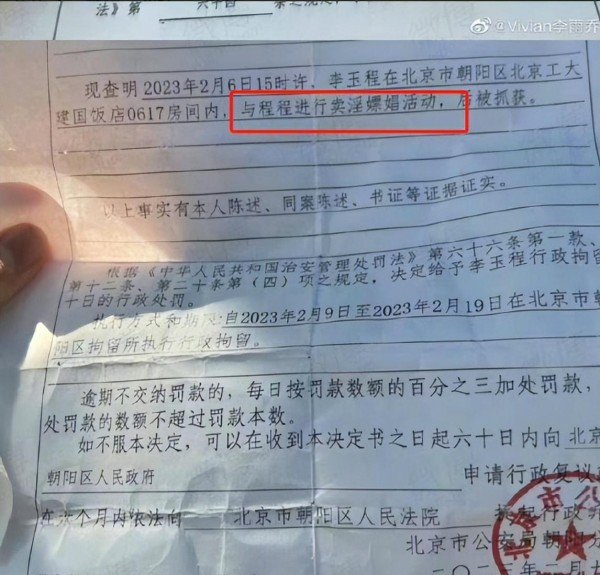 法》第 六十四
@Vivian李雨乔
现查明 2023年2月6日15时许，李玉程在北京市朝阳区北京工大
建国饭店0617房间内，与程程进行卖淫嫖娼活动，后被抓获。
以上事实有本人陈述、同案陈述、书证等证据证实。
依据《中华人民共和国治安管理处罚法》第六十六条第一款、
第十二条、第二十条第（四）项之规定，决定给予李玉程行政拘留
十日的行政处罚。
执行方式和期限:自2023年2月9日至2023年2月19日在北京市朝
阳区拘留所执行行政拘留。
逾期不交纳罚款的，每日按罚款数额的百分之三加处罚款，
处罚款的数额不超过罚款本数。
如不服本决定，可以在收到本决定书之日起六十日内向 北京
朝阳区人民政府 申请行政复议
在六个月内依法向 北京市朝阳区人民法院 提起行政
北京市公安局朝阳
二〇二三年二月